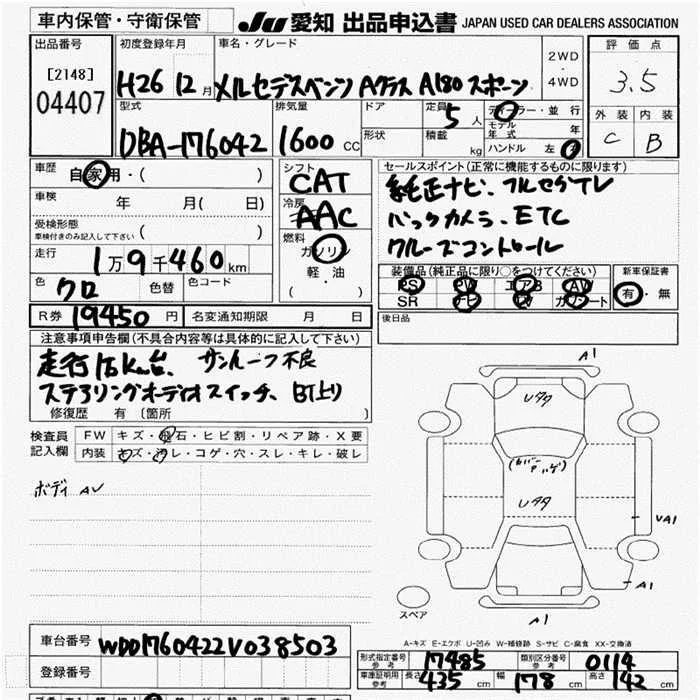 車内保管・守衛保管
JU 愛知 出品申込書 JAPAN USED CAR DEALERS ASSOCIATION
出品番号
[2148]
04407
初度登録年月
H26 12月
車名・グレード
メルセデスベンツ Aクラス A180 スポーツ
2WD・4WD
評価点
3.5
外装 内装
C B
型式
DBA-176042
排気量
1600 CC
ドア
形状
定員 5人
積載 kg
ディーラー・並行
モデル年式 年
ハンドル 左・右
車歴 自家用・( )
車検 年 月( 日)
受検形態
車検付きのみ記入して下さい
( )
走行 1万9千460km
色 クロ
色替
色コード
R券 19450円
名変通知期限 月 日
シフト
CAT
冷房
AAC
燃料
ガソリン
軽・油
( ・ )
セールスポイント(正常に機能するものに限ります)
純正ナビ、フルセグTV
バックカメラ、ETC
クルーズコントロール
装備品(純正品に限り○をつけてください)
PS PW エアB AW
SR ナビ TV カワシート
新車保証書
有・無
後日品
注意事項申告欄(不具合内容等は具体的に記入して下さい)
サンルーフ不良
ステアリングオーディオスイッチ、
修復歴 有 〔箇所 〕
検査員記入欄
FW キズ・飛石・ヒビ割・リペア跡・X要
内装 キズ・汚レ・コゲ・穴・スレ・キレ・破レ
ボディ AV
A1
レタタ
(カバーハゲ)
レタタ
VA1
A1
スペア
A1
A-キズ E-エクボ U-凹み W-補修跡 S-サビ C-腐食 XX-交換済
車台番号 WDD1760422V038503
登録番号
形式指定番号 参考 17485
類別区分番号 参考 0114
車庫証明用 参考 長さ 435cm 幅 178cm 高さ 142cm